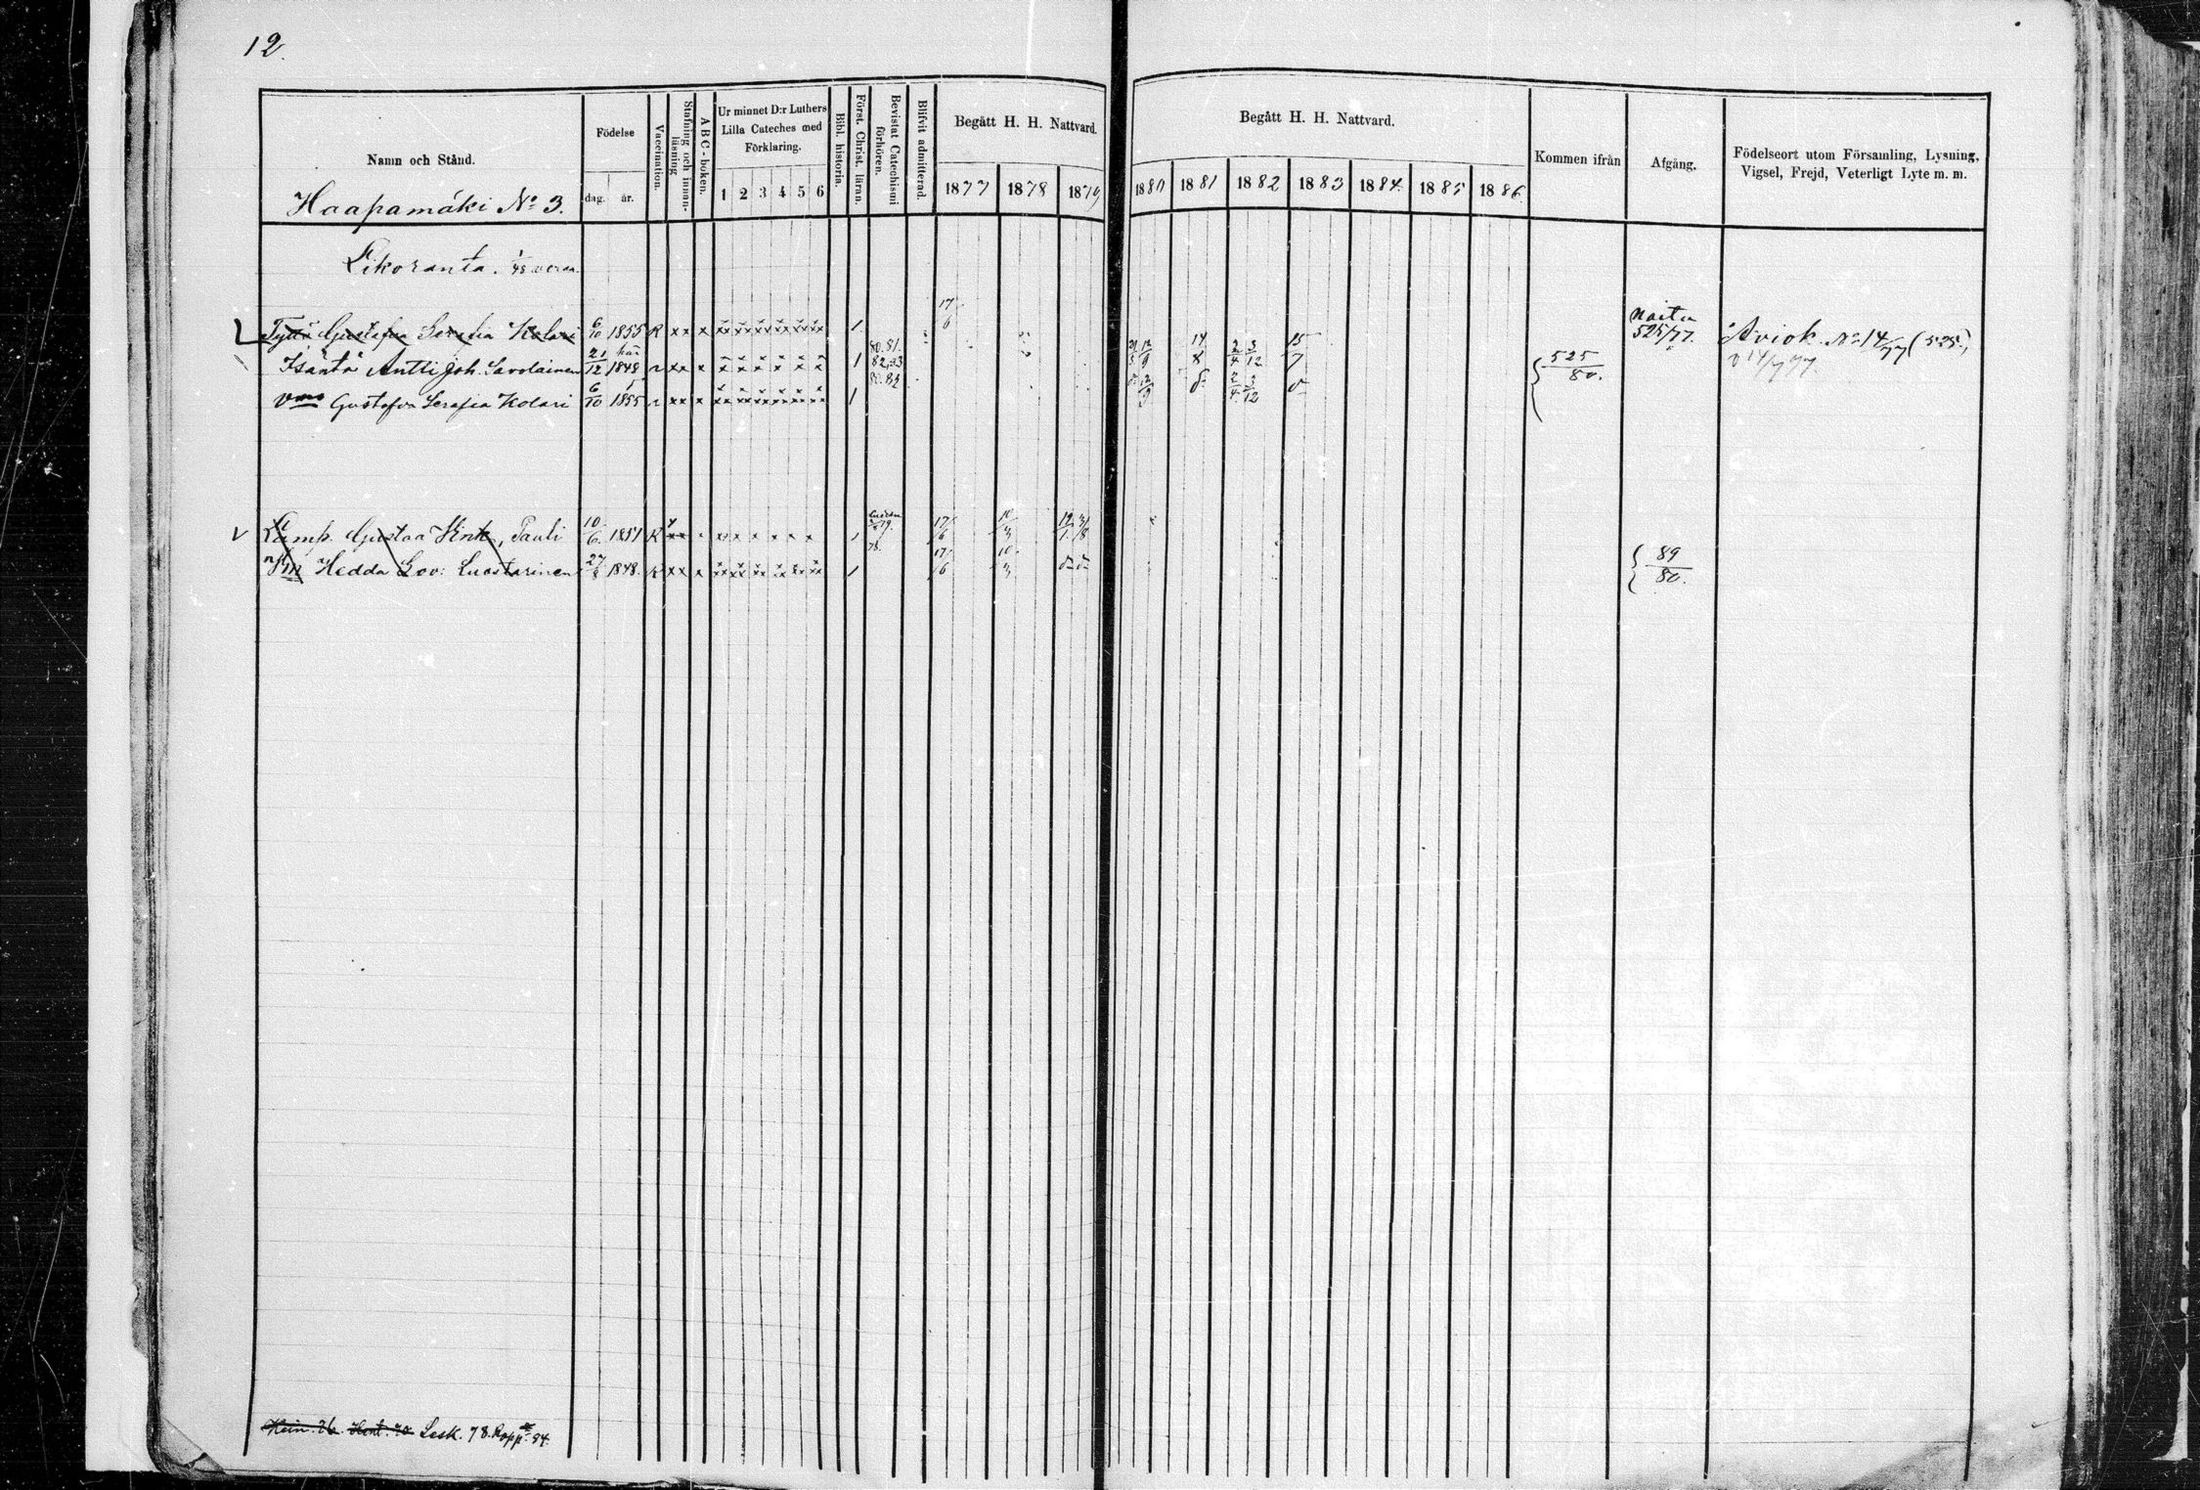 12.
Namn och Stånd.
Födelse
dag. år.
Vaccination.
Stafning och innan-läsning
A B C-boken.
Ur minnet D:r Luthers Lilla Cateches med Förklaring.
1 2 3 4 5 6
Bibl. historia.
Först. Christ. läran.
Bevistat Catechismi förhören.
Blifvit admitterad.
Begått H. H. Nattvard.
1877 1878 1879
Begått H. H. Nattvard.
1880 1881 1882 1883 1884 1885 1886
Kommen ifrån
Afgång.
Födelseort utom Församling, Lysning, Vigsel, Frejd, Veterligt Lyte m. m.
Haapamäki No 3.
Likoranta. 1/48
17/6
Tyttö Gustafva Serafia Kolari 6/10 1855 R xx x 1
naitu 525/77.
Aviok. No 14/77 (525.)
Isäntä Antti Joh. Savolainen 21/12 1848 1 80.81. 82.83 14/8 2/4 3/12 15/7 525/80.
vmo Gustafva Serafia Kolari 6/10 1855 1 80.82 2/4 3/12
Lamp. Gustaa Hink, Pauli 10/6 1851 R 17/6 10/3
Hedda Lov: Luostarinen 27/8 1848. R 1 78. 17/6 10/3 89/80.
Hein. 26. Hent. 70 Lesk. 78. Ropp. 84.